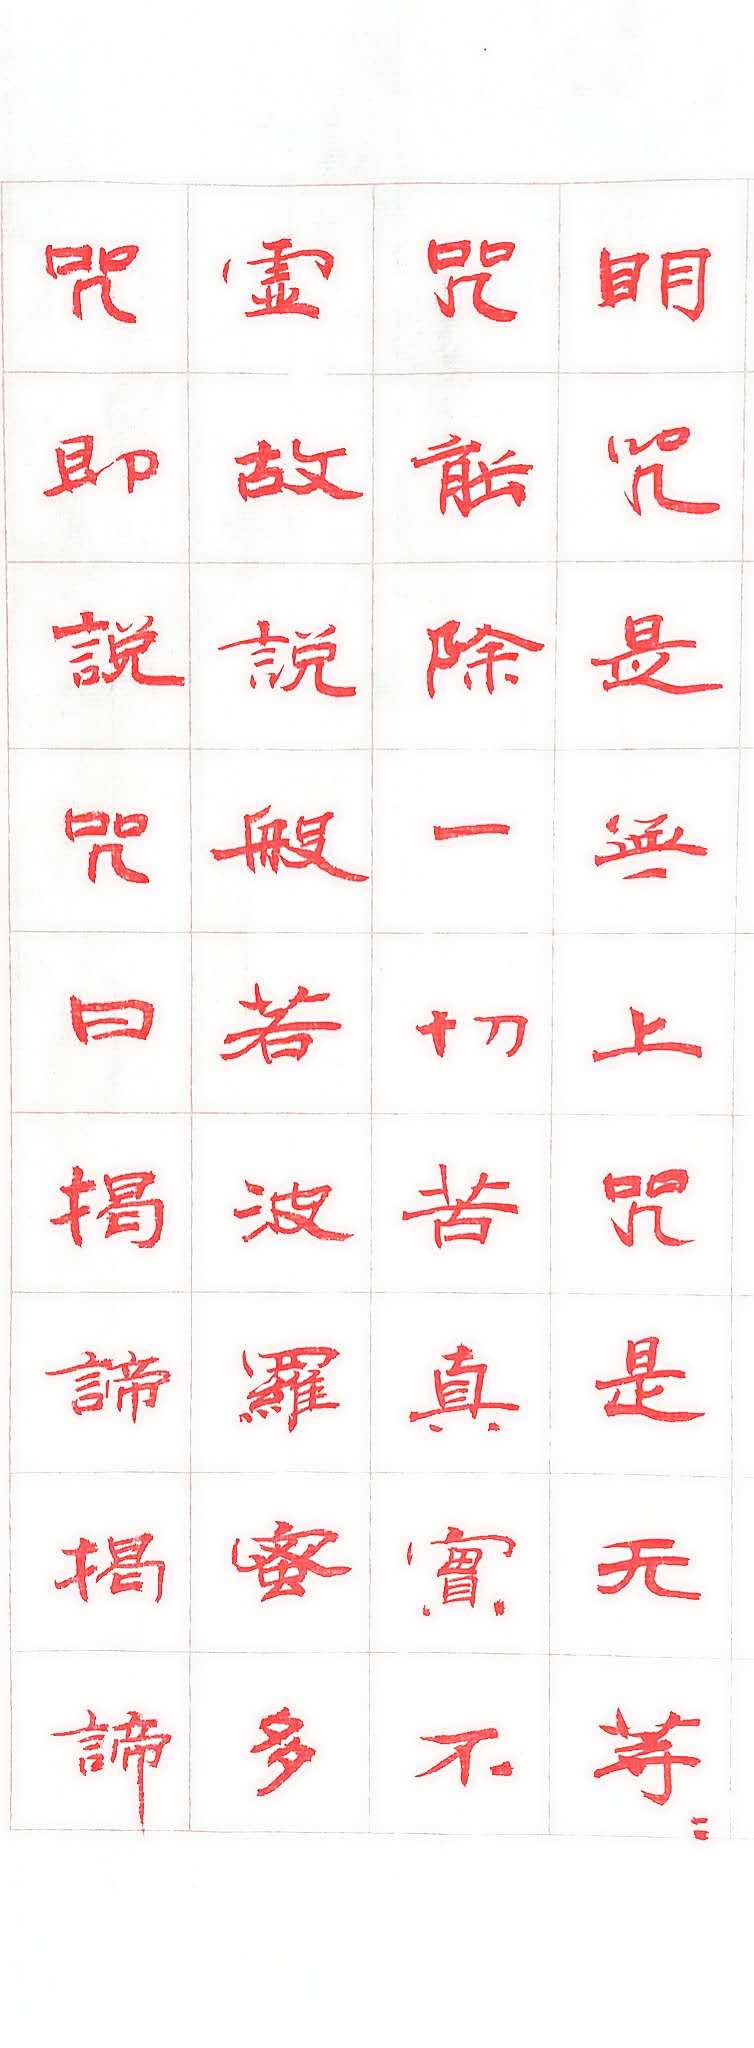 明咒是無上咒是无等〻
咒能除一切苦真實不
虛故說般若波羅蜜多
咒即說咒曰揭諦揭諦